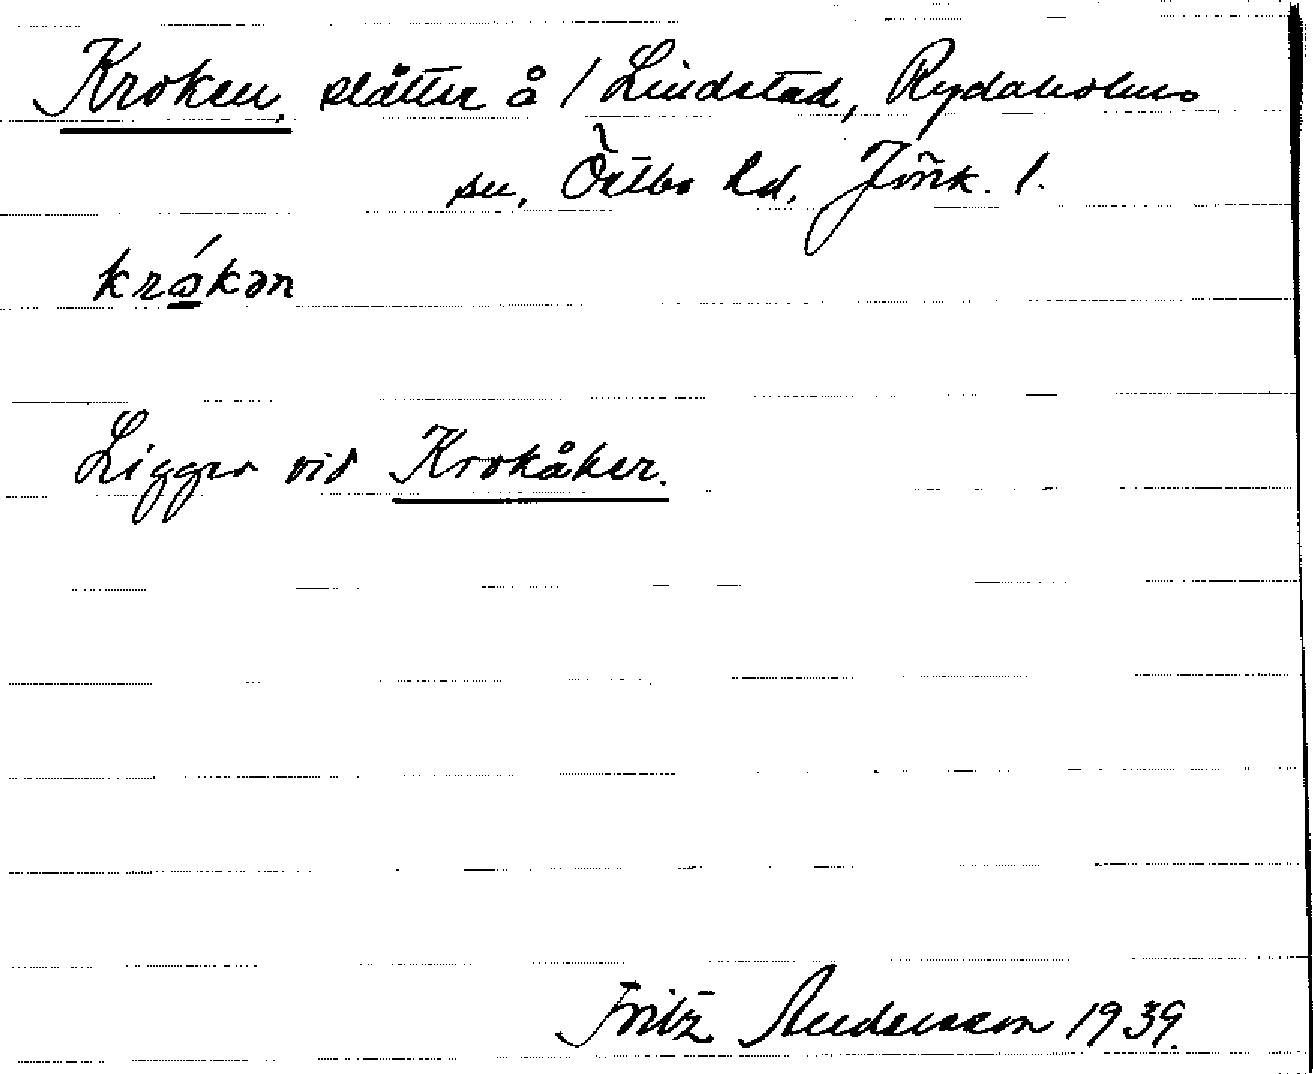 Kroken, slåtter å / Lindstad, Rydaholms
sn, Östbo hd, Jönk. l.
krókən
Ligger vid Krokåker.
Fritz Andersson 1939.